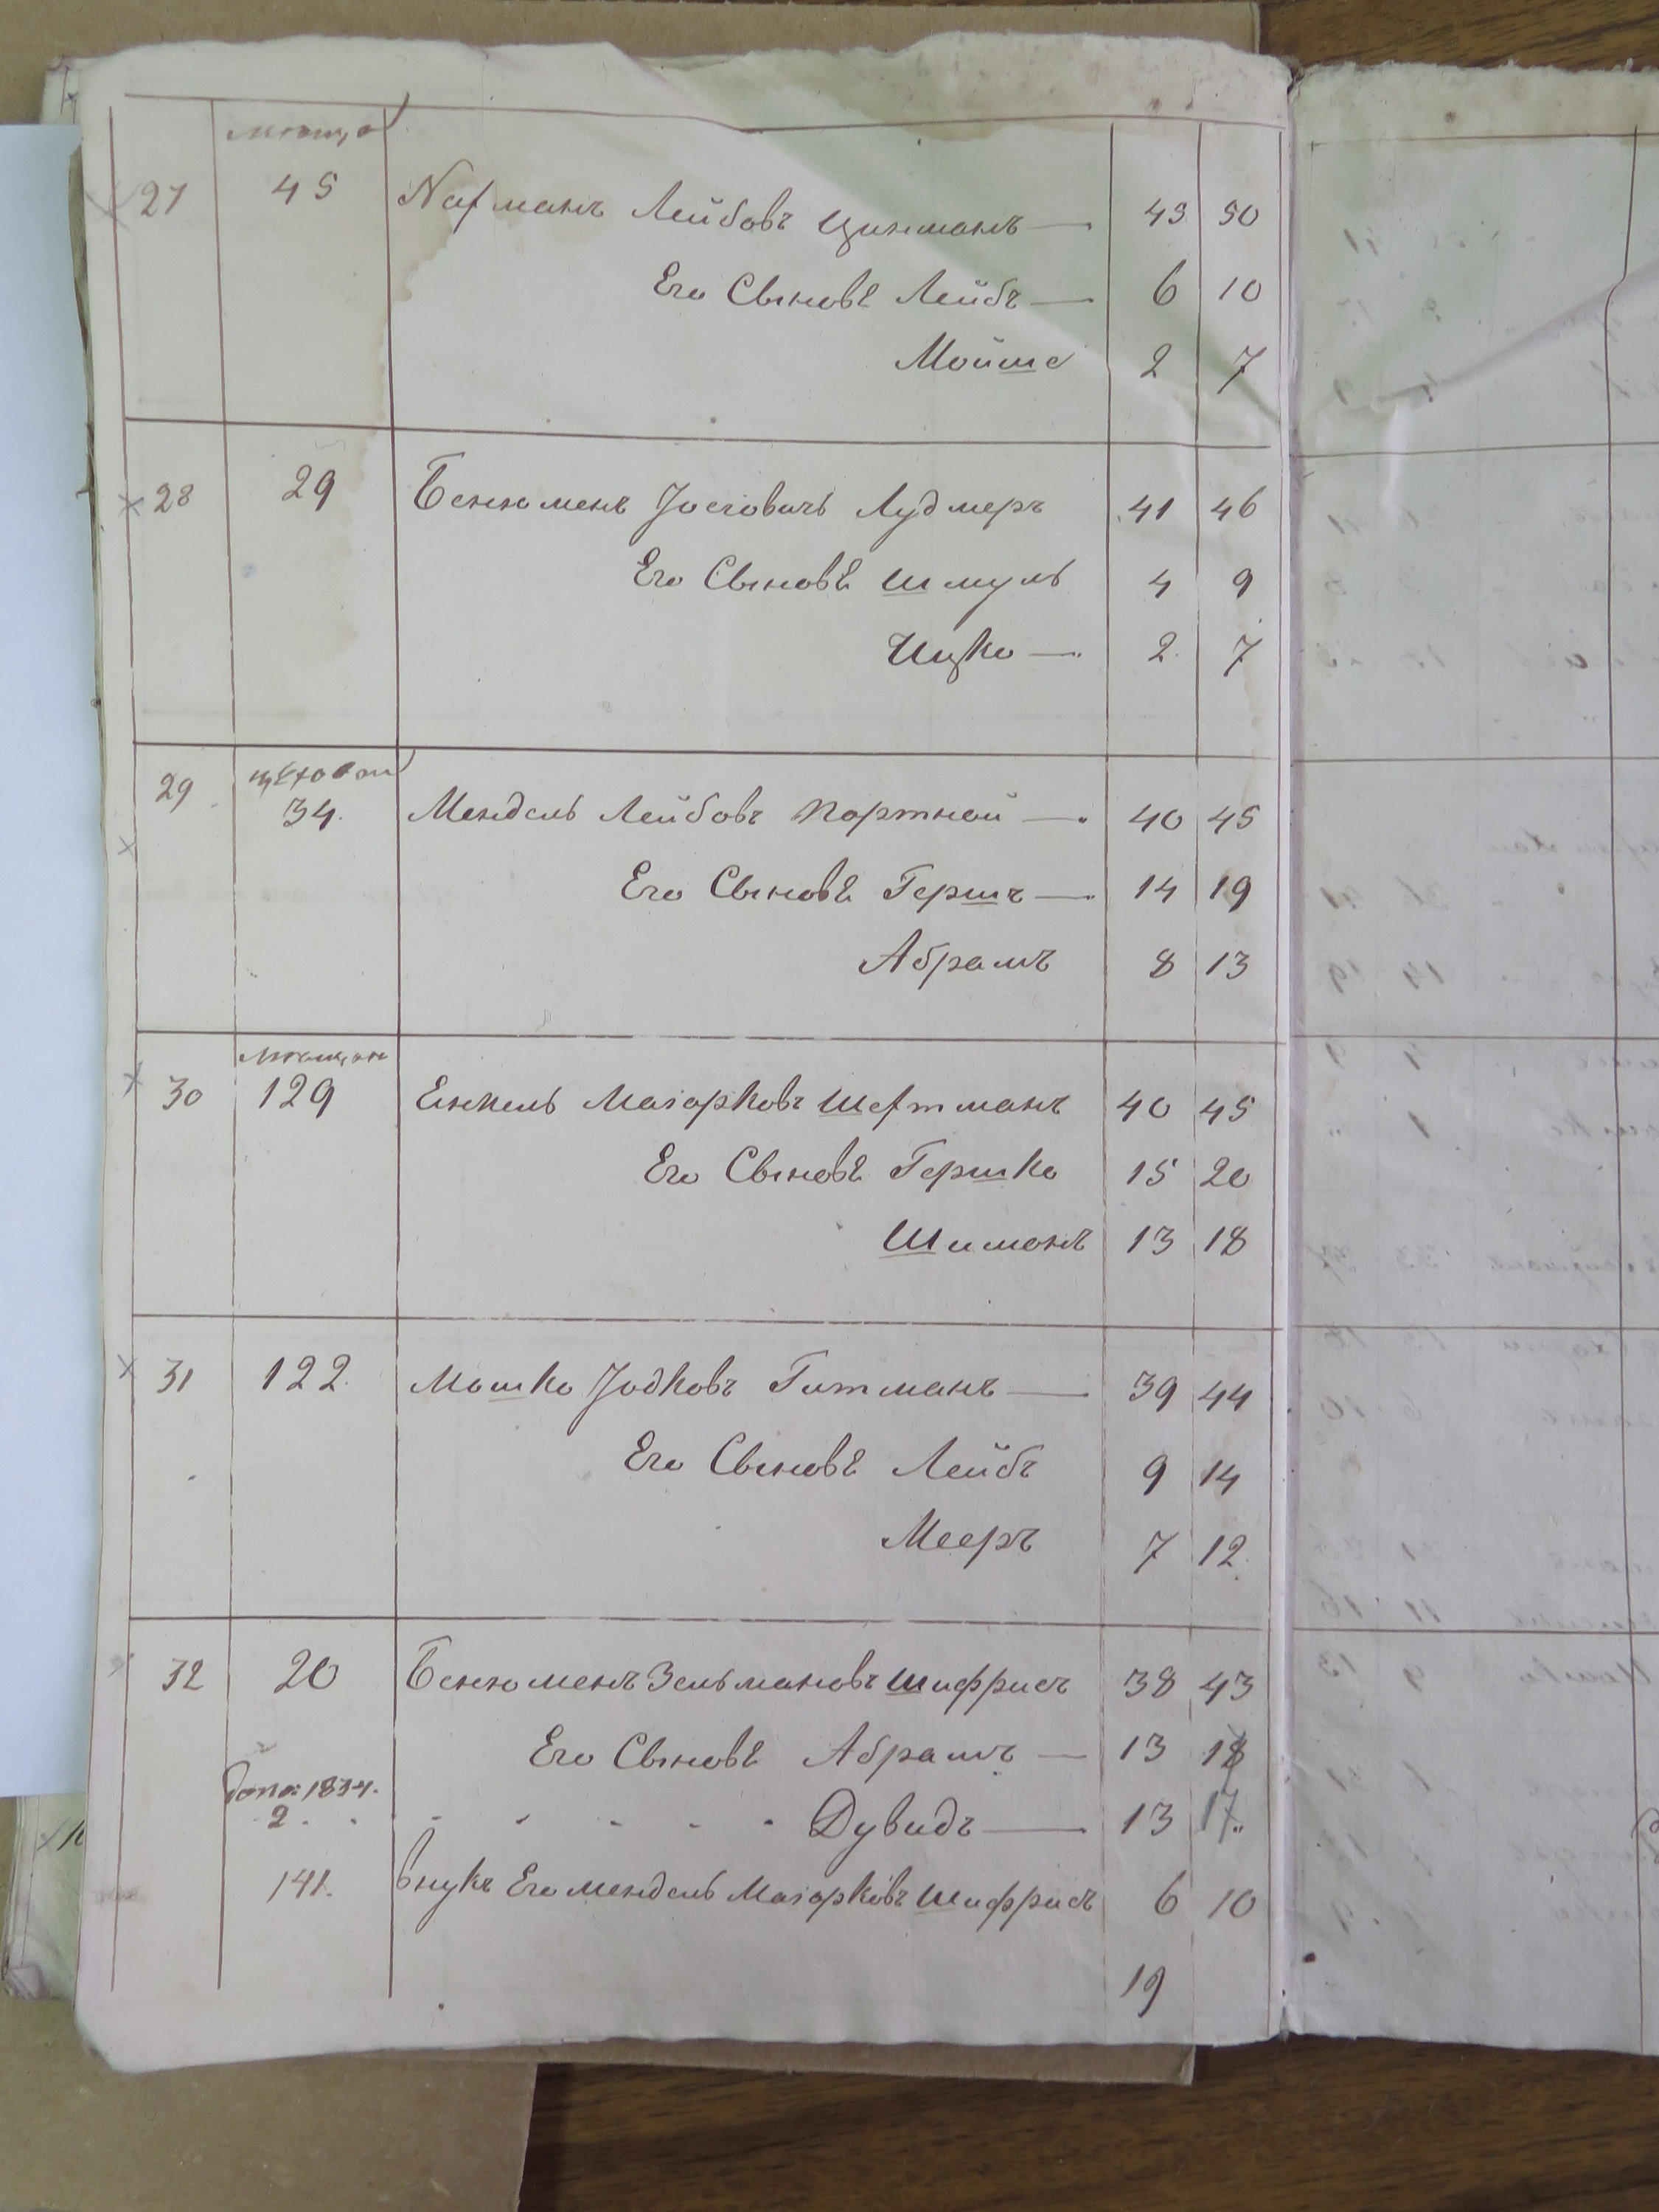 мѣщан
27 45 Нахманъ Лейбовъ Цинманъ — 45 50
Его Сыновѣ Лейбъ — 6 10
Мойше 2 7
28 29 Бенюменъ Іосіовичъ Лудмеръ 41 46
Его Сыновѣ Шмуль 4 9
Ицко — 2 7
цѣховой
29 34. Мендель Лейбовъ Портной — 40 45
Его Сыновѣ Гершъ — 14 19
Абрамъ 8 13
мѣщан
30 129 Енкель Маіорковъ Шехтманъ 40 45
Его Сыновѣ Гершко 15 20
Шимонъ 13 18
31 122. Мошко Іодковъ Гитманъ — 39 44
Его Сыновѣ Лейбъ 9 14
Мееръ 7 12
32 20 Бенюменъ Зельмановъ Шифрисъ 38 43
Его Сыновѣ Абрамъ — 13 18
допо: 1834.
2. Дувидъ — 13 17
141. внукъ Его Мендель Маіорковъ Шифрисъ 6 10
19